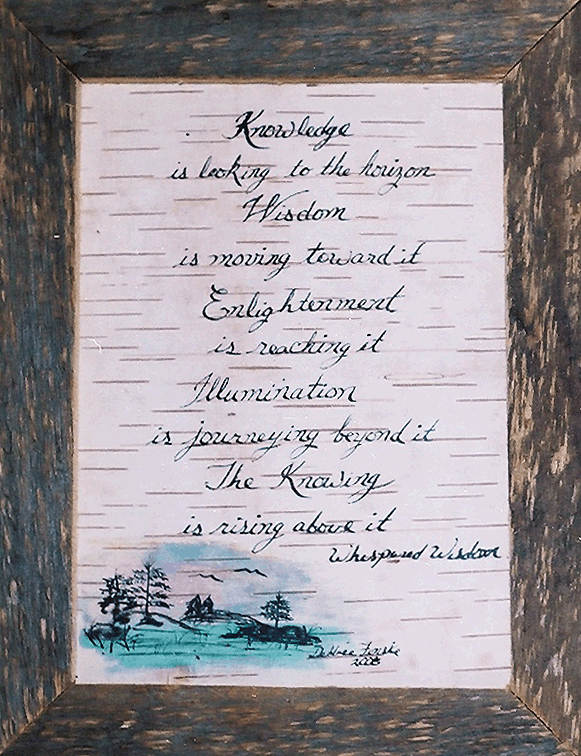 Knowledge
is looking to the horizon
Wisdom
is moving toward it
Enlightenment
is reaching it
Illumination
is journeying beyond it
The Knowing
is rising above it
Whispered Wisdom
Debbie
2008